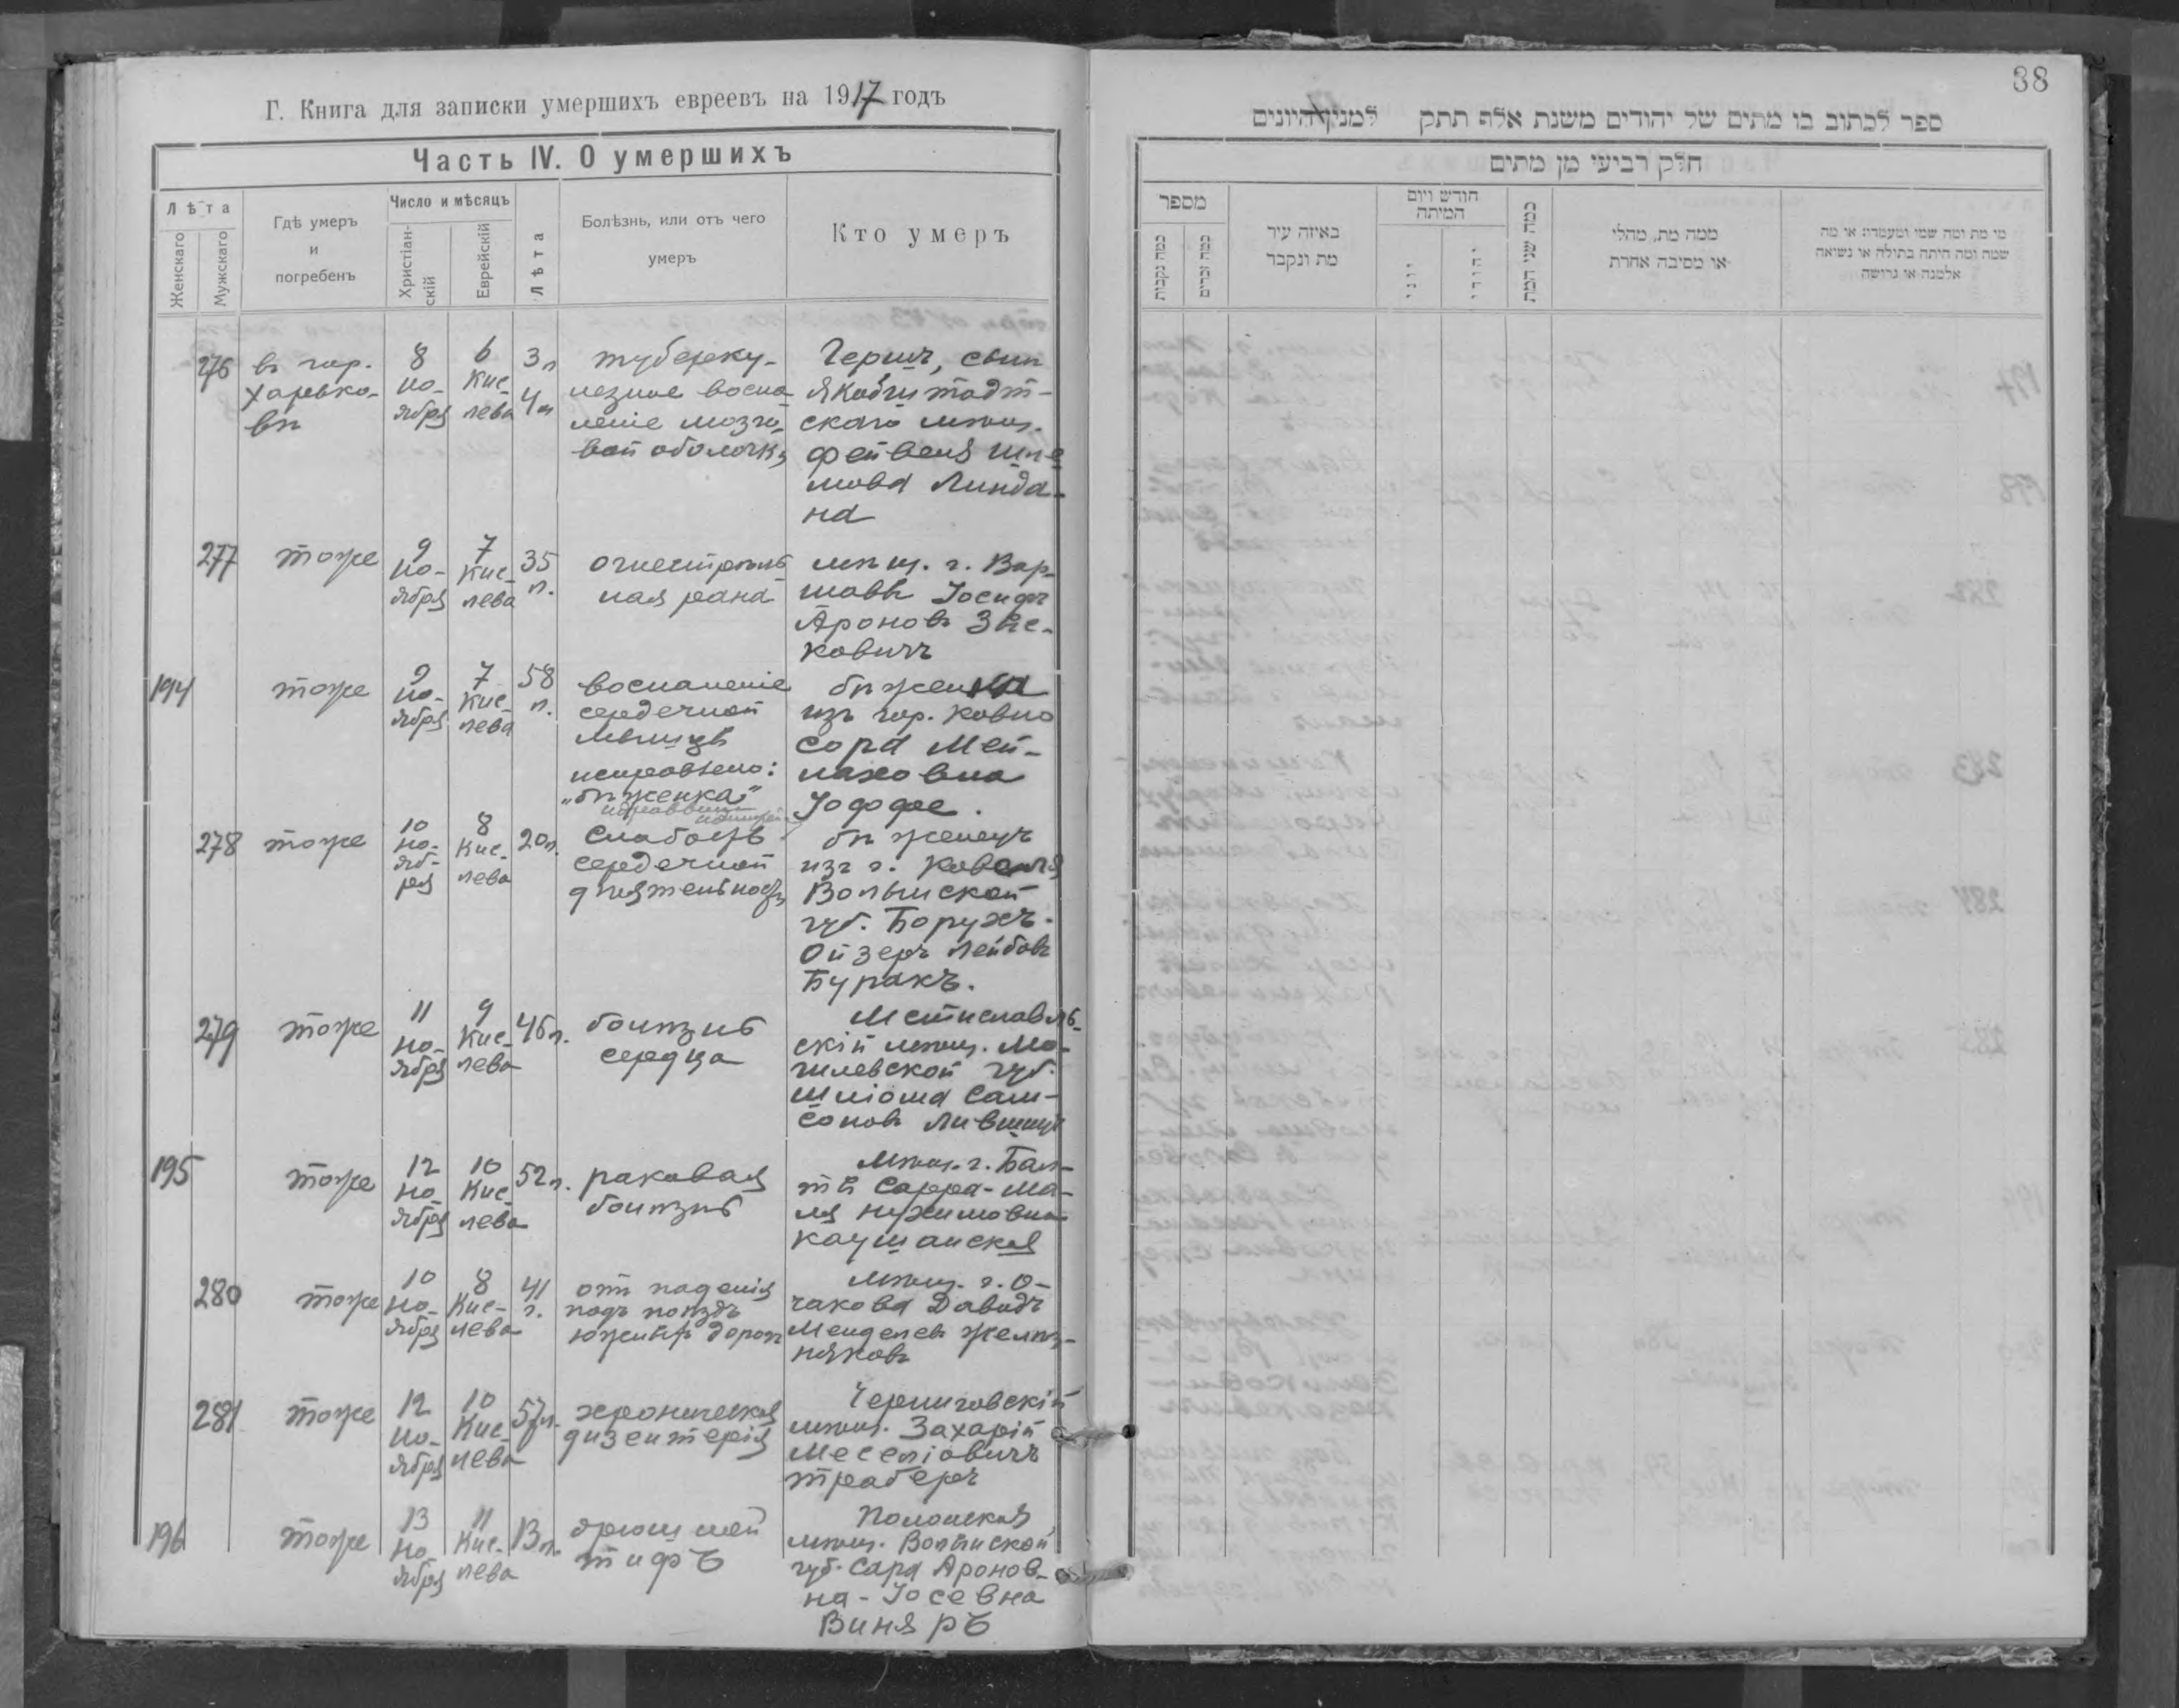 Г. Книга для записки умершихъ евреевъ на 1917 годъ
Часть IV. О умершихъ
Лѣта
Женскаго
Мужскаго
Гдѣ умеръ
и
погребенъ
Число и мѣсяцъ
Христіан-
скій
Еврейскій
Лѣта
Болѣзнь, или отъ чего
умеръ
Кто умеръ
276
въ гор.
Харько-
вѣ
8
но-
ября
6
Кис-
лева
3 л
4 м
туберку-
лезное воспа-
леніе мозго-
вой оболочки
Гершъ, сынъ
Якобштадт-
скаго мѣщ.
Фейвеля Шле-
мова Линда-
на
277
тоже
9
но-
ября
7
Кис-
лева
35
л.
огнестрѣль-
ная рана
мѣщ. г. Вар-
шавы Іосифъ
Ароновъ
ковичъ
194
тоже
9
но-
ября
7
Кис-
лева
58
л.
воспаленіе
сердечной
мышцы
исправлено:
„бѣженка"
бѣженка
изъ гор. Ковно
Сора Мей-
лаховна
Іоффе.
278
тоже
10
но-
яб-
ря
8
Кис-
лева
20 л.
слабость
сердечной
дѣятельности
бѣженецъ
изъ г. Ковеля
Волынской
губ. Борухъ-
Ойзеръ Лейбовъ
Буракъ.
279
тоже
11
но-
ября
9
Кис-
лева
46 л.
болѣзнь
сердца
Мстиславль-
скій мѣщ. Мо-
гилевской губ.
Шліома Сам-
соновъ Лившиць
195
тоже
12
но-
ября
10
Кис-
лева
52 л.
раковая
болѣзнь
Мѣщ. г. Бал-
ты Сарра-Ма-
ля Нухимовна
Каушанская
280
тоже
10
но-
ября
8
Кис-
лева
41
г.
отъ паденія
подъ поѣздъ
южныхъ дорогъ
Мѣщ. г. О-
чакова Давидъ
Менделевъ Желѣз-
няковъ
281
тоже
12
но-
ября
10
Кис-
лева
57 л.
хроническая
дизентерія
Черниговскій
мѣщ. Захарій
Меселіовичъ
Траберъ
196
тоже
13
но-
ября
11
Кис-
лева
13 л.
брюшной
тифъ
Полонская
мѣщ. Волынской
губ. Сара Аронов-
на-Іосевна
Виняръ
38
ספר לכתוב בו מתים של יהודים משנת אלף תתק למנין היונים
חלק רביעי מן מתים
מספר
כמה נקבות
כמה זכרים
באיזה עיר
מת ונקבר
חודש ויום
המיתה
יוני
יהודי
כמה שני המת
ממה מת, מחלי
או מסיבה אחרת
מי מת ומה שמו ומעמדו או מה
שמה ומה היתה בתולה או נשואה
אלמנה או גרושה